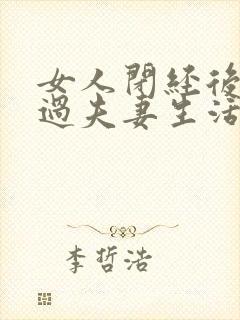 女人閉経後
過夫妻生活
李哲浩